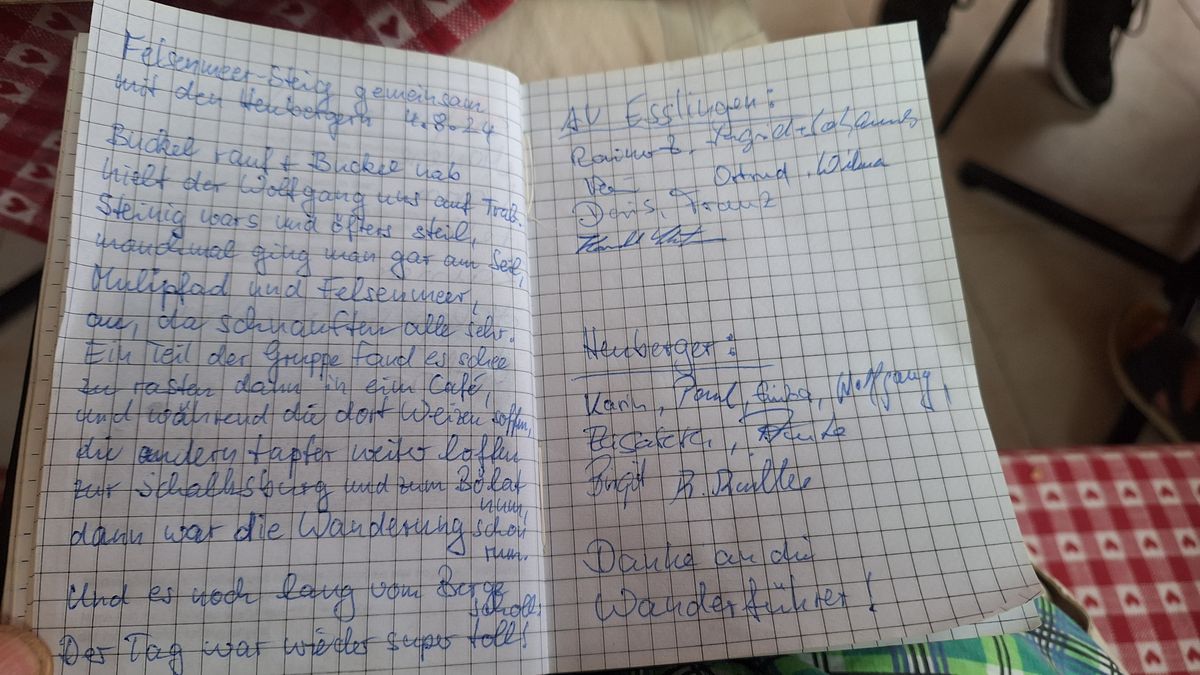 Felsenmeer-Steig gemeinsam
mit den Heubergern 4.8.24
Buckel rauf + Buckel nab
hielt der Wolfgang uns auf Trab.
Steinig wars und öfters steil,
manchmal ging man gar am Seil,
Mulipfad und Felsenmeer,
au, da schnauften alle sehr.
Ein Teil der Gruppe fand es schee
zu rasten dann in eim Café,
und während die dort Weizen soffen,
die andern tapfer weiter loffen
zur Schalksburg und zum Bölat
num,
dann war die Wanderung schon
rum.
Und es noch lang vom Berge
scholl:
Der Tag war wieder super toll!
AV Esslingen:
Ingrid + Johannes
Ortrud, Wilma
Doris, Franz
Heuberger:
Karin, Paul, Wolfgang,
Birgit
Danke an die
Wanderführer!